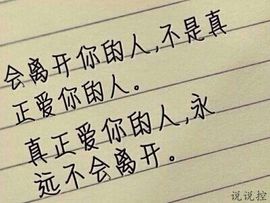 会离开你的人,不是真
正爱你的人。
真正爱你的人,永
远不会离开。
说说控